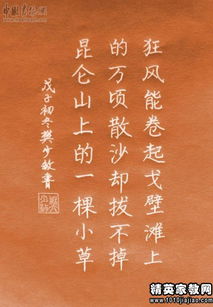 狂风能卷起戈壁滩上
的万顷散沙却拔不掉
昆仑山上的一棵小草
戊子初冬樊少敏書
精英家教网
http://www.1010jiajiao.com